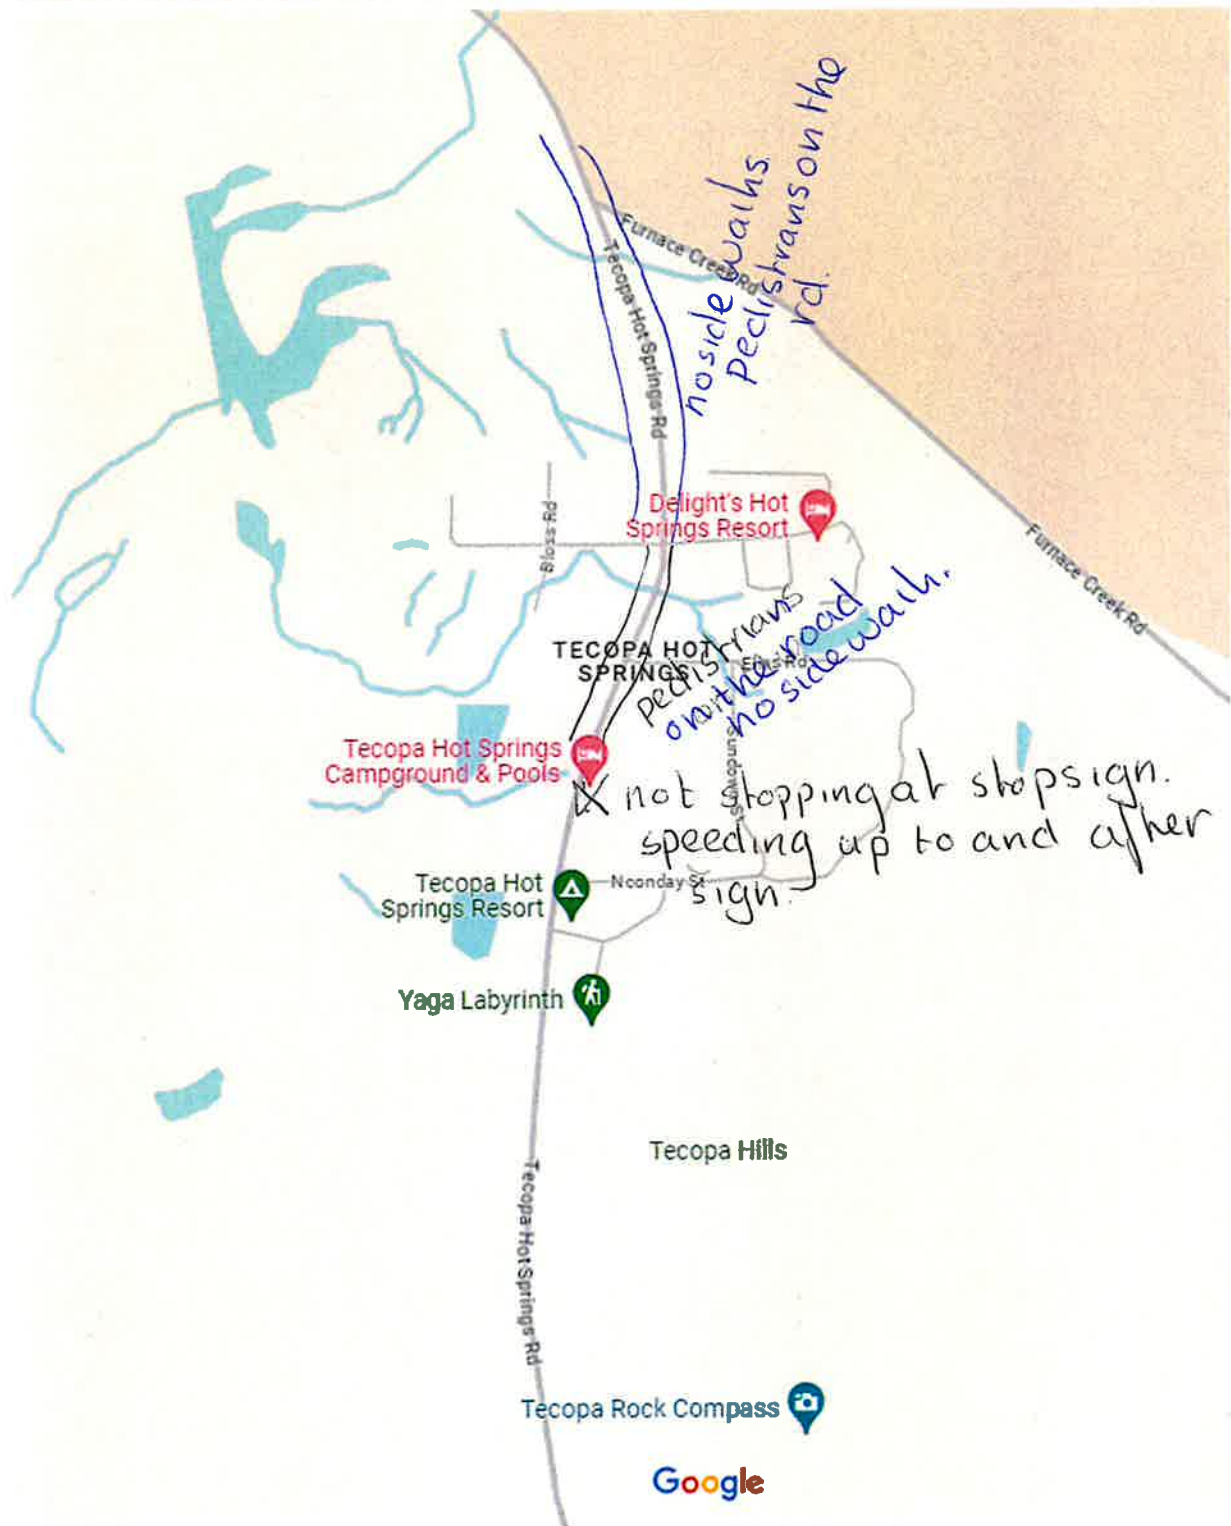 no side walks.
pedistrans on the
rd.
Furnace Creek Rd
Tecopa Hot Springs Rd
Delight's Hot
Springs Resort
Bloss Rd
Furnace Creek Rd
TECOPA HOT
SPRINGS
Elias Rd
pedistrians
on the road
no side walk.
Sundown St
Tecopa Hot Springs
Campground & Pools
X not stopping at stopsign.
speeding up to and after
sign.
Tecopa Hot
Springs Resort
Noonday St
Yaga Labyrinth
Tecopa Hills
Tecopa Hot Springs Rd
Tecopa Rock Compass
Google